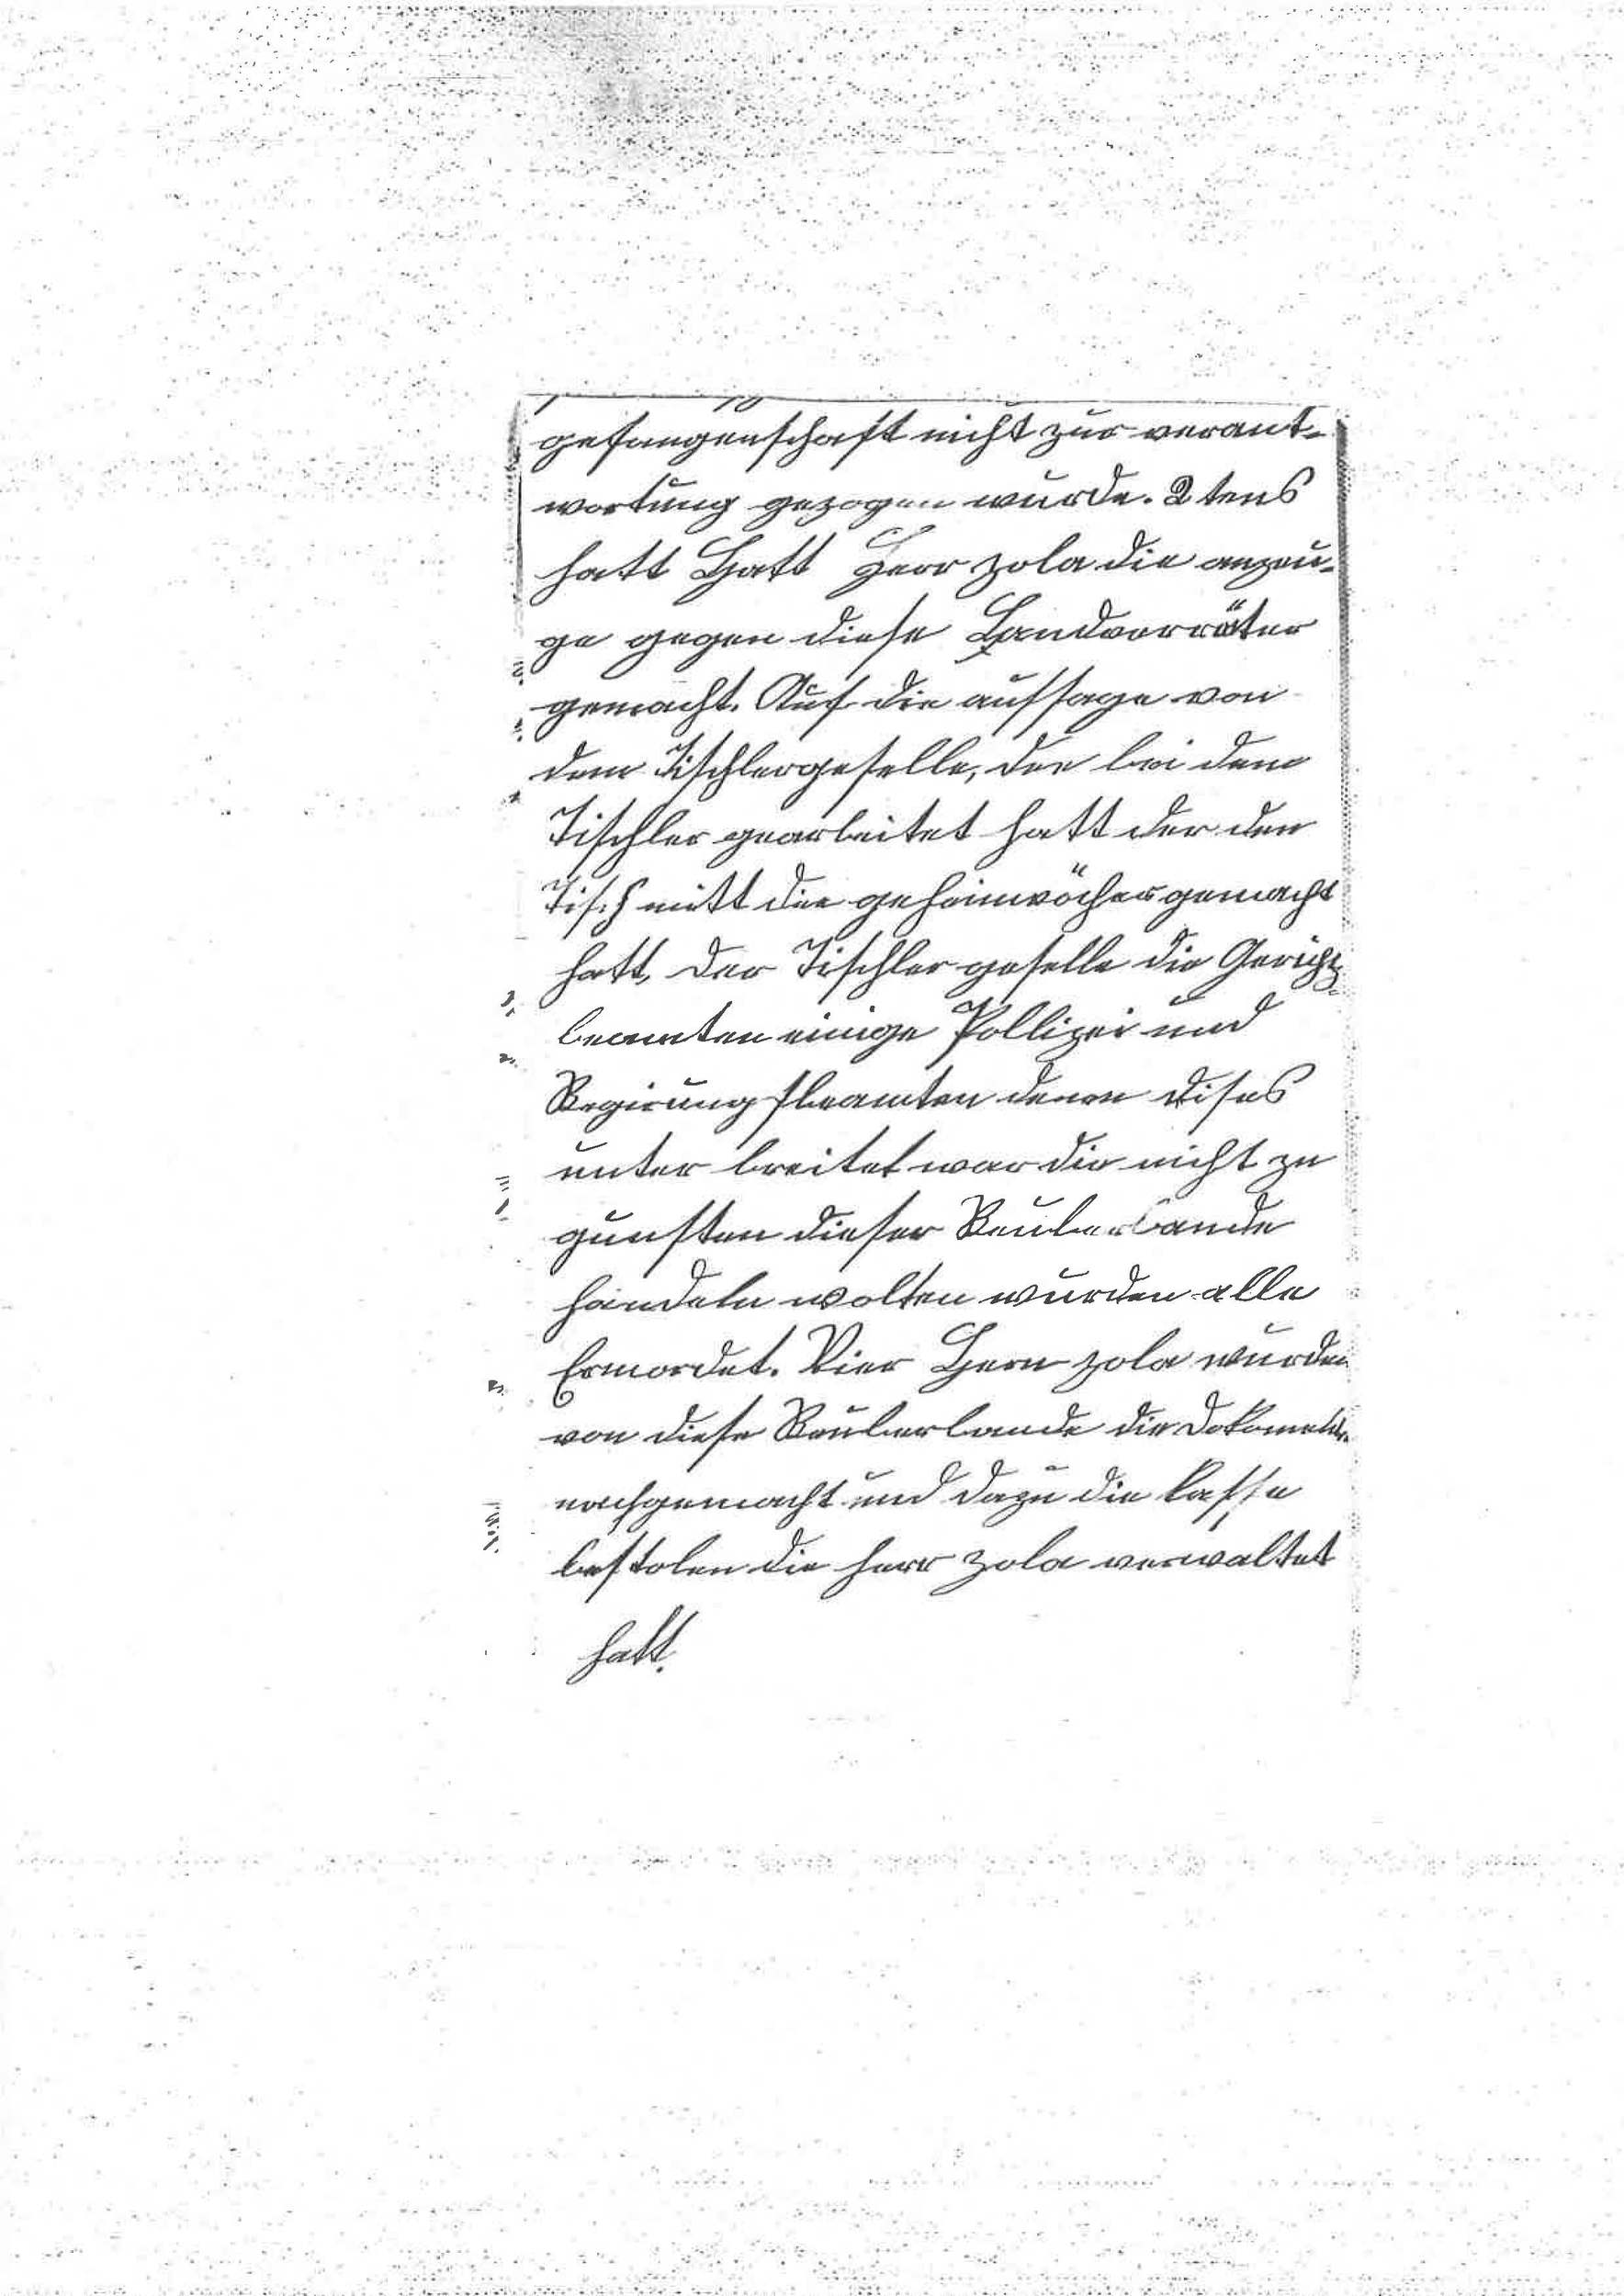 gefangenschaft nicht zur verant-
wortung gezogen wurde. 2 tens
hatt Hatt Herr Zola die anzeu-
ge gegen diese Landverräter
gemacht. Auf die aussage von
dem Tischlergeselle, der bei dem
Tischler gearbeitet hatt der den
Tisch mitt die geheimvächer gemacht
hatt, der Tischler geselle die Gerichts-
beamten einige Pollizei und
Regirungsbeamten denen dises
unter breitet war die nicht zu
gunsten dieser Reuberbande
handeln wolten wurden alle
Ermordet. Vier Hern Zola wurden
von diese Reuberbande die Dokomente
nachgemacht und dazu die kasse
bestolen die Herr Zola verwaltet
hatt.